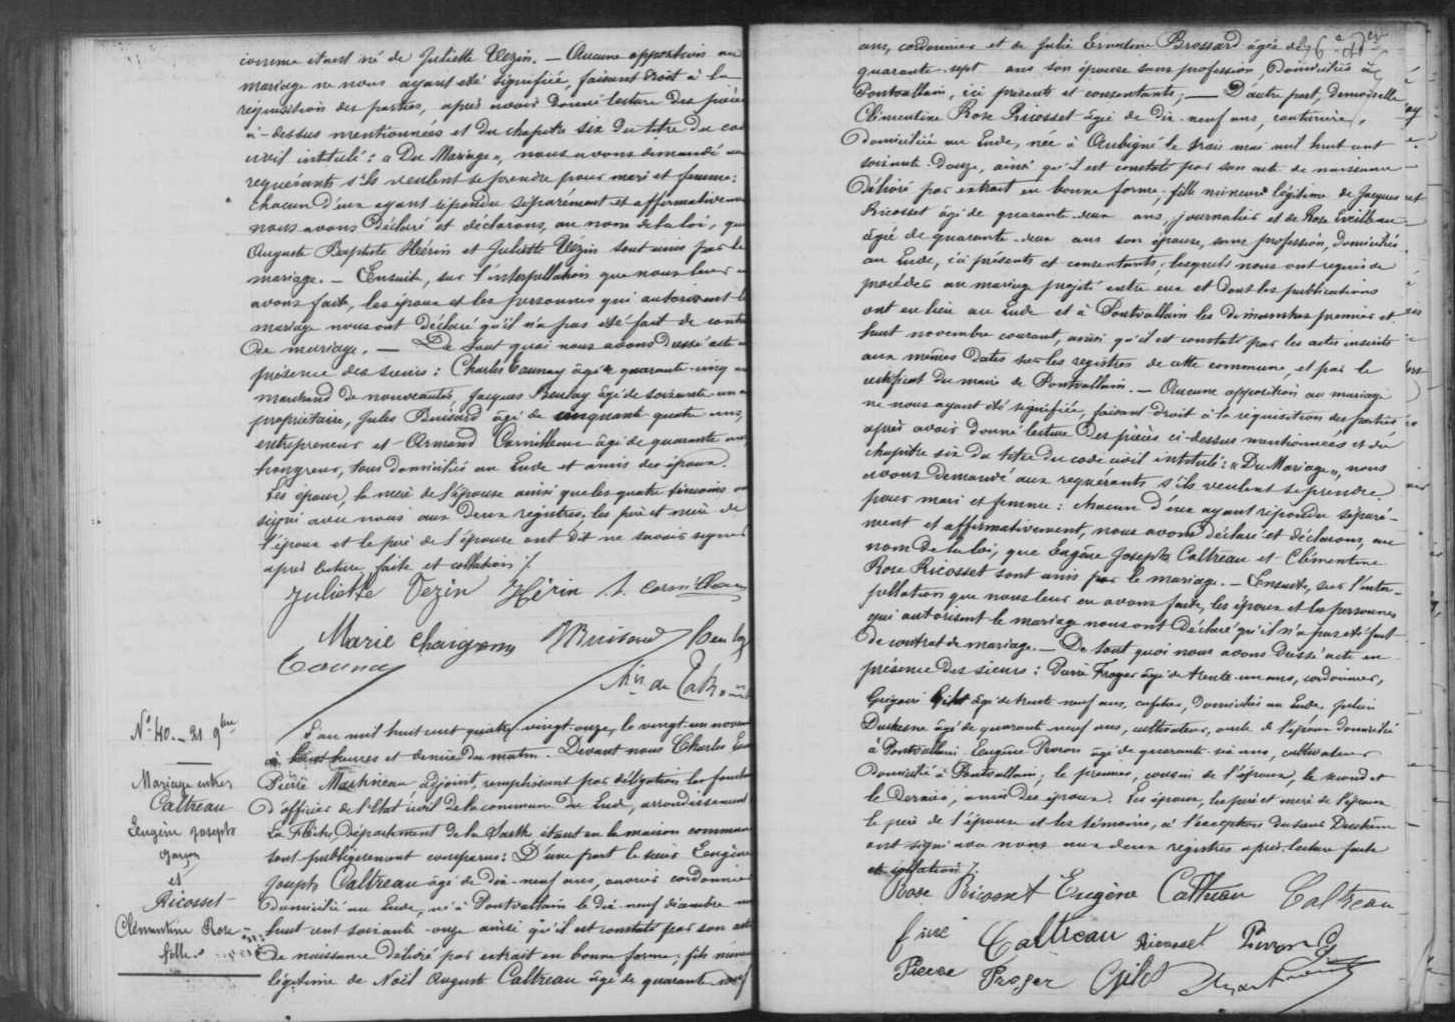 comme étant né de Juliette Vézin. — Aucune opposition au
mariage ne nous ayant été signifiée, faisant droit à la
réquisition des parties, après avoir donné lecture des pièces
ci-dessus mentionnées et du chapitre six du titre du code
civil intitulé : « Du Mariage », nous avons demandé aux
requérants s'ils veulent se prendre pour mari et femme :
chacun d'eux ayant répondu séparément et affirmativement
nous avons déclaré et déclarons, au nom de la loi, que
Auguste Baptiste Hérin et Juliette Vézin sont unis par le
mariage. — Ensuite, sur l'interpellation que nous leur en
avons faite, les époux et les personnes qui autorisent le
mariage nous ont déclaré qu'il n'a pas été fait de contrat
de mariage. — De tout quoi nous avons dressé acte en
présence des sieurs : Charles Launay âgé de quarante-cinq ans
marchand de nouveautés, Jacques Beulay âgé de soixante un ans
propriétaire, Jules Buisard âgé de cinquante quatre ans,
entrepreneur et Armand Cornilleau âgé de quarante ans,
hongreur, tous domiciliés au Lude et amis des époux.
Les époux, la mère de l'épouse ainsi que les quatre témoins ont
signé avec nous aux deux registres, les père et mère de
l'époux et le père de l'épouse ont dit ne savoir signer
après lecture faite et collation ./.
Juliette Vézin Hérin A. Cornilleau
Marie Chaigon JBuisard Beulay
Launay
N° 40. — 21 9bre
Mariage entre
Caltreau
Eugène Joseph
garçon
et
Ricosset
Clémentine Rose
fille
L'an mil huit cent quatre-vingt-onze, le vingt-un novembre
à huit heures et demie du matin. Devant nous Charles
Pierre Martineau adjoint, remplissant par délégation les fonctions
d'officier de l'état civil de la commune du Lude, arrondissement
La Flèche, département de la Sarthe étant en la maison commune
sont publiquement comparus : D'une part le sieur Eugène
Joseph Caltreau âgé de dix-neuf ans, ouvrier cordonnier
domicilié au Lude, né à Pontvallain le dix-neuf décembre mil
huit cent soixante-onze ainsi qu'il est constaté par son acte
de naissance délivré par extrait en bonne forme ; fils mineur
légitime de Noël Auguste Caltreau âgé de quarante neuf
76e
ans, cordonnier et de Julie Ernestine Brossard âgée de
quarante-sept ans son épouse sans profession, domiciliés à
Pontvallain, ici présents et consentants ; — D'autre part, demoiselle
Clémentine Rose Ricosset âgée de dix-neuf ans, couturière,
domiciliée au Lude, née à Aubigné le trois mai mil huit cent
soixante-douze, ainsi qu'il est constaté par son acte de naissance
délivré par extrait en bonne forme ; fille mineure légitime de Jacques
Ricosset âgé de quarante-deux ans, journalier et de Rose
âgée de quarante-deux ans son épouse, sans profession, domiciliés
au Lude, ici présents et consentants ; lesquels nous ont requis de
procéder au mariage projeté entre eux et dont les publications
ont eu lieu au Lude et à Pontvallain les dimanches premier et
huit novembre courant, ainsi qu'il est constaté par les actes inscrits
aux mêmes dates sur les registres de cette commune, et par le
certificat du maire de Pontvallain. — Aucune opposition au mariage
ne nous ayant été signifiée, faisant droit à la réquisition des parties
après avoir donné lecture des pièces ci-dessus mentionnées et du
chapitre six du titre du code civil intitulé : « Du Mariage », nous
avons demandé aux requérants s'ils veulent se prendre
pour mari et femme : chacun d'eux ayant répondu séparé-
ment et affirmativement, nous avons déclaré et déclarons, au
nom de la loi, que Eugène Joseph Caltreau et Clémentine
Rose Ricosset sont unis par le mariage. — Ensuite, sur l'inter-
pellation que nous leur en avons faite, les époux et les personnes
qui autorisent le mariage nous ont déclaré qu'il n'a pas été fait
de contrat de mariage. — De tout quoi nous avons dressé acte en
présence des sieurs : Pierre Froger âgé de trente-un ans, cordonnier,
Grégoire Gilet âgé de trente neuf ans, cafetier, domiciliés au Lude
Duchesne âgé de quarante neuf ans, cultivateur, oncle de l'époux domicilié
à Pontvallain Eugène Pivron âgé de quarante six ans, cultivateur
domicilié à Pontvallain ; le premier, cousin de l'époux, le second et
le dernier, amis des époux. Les époux, les père et mère de l'époux
le père de l'épouse et les témoins, à l'exception du sieur Duchesne
ont signé avec nous aux deux registres après lecture faite
et collation ./.
Rose Ricosset Eugène Caltreau Caltreau
Caltreau Ricosset Pivron
Pierre Froger Gilet